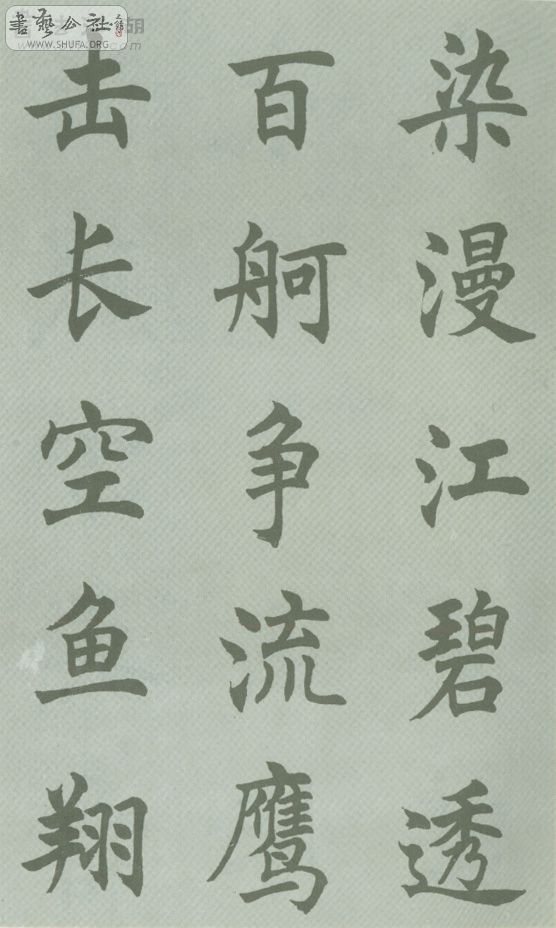 染漫江碧透
百舸争流鹰
击长空鱼翔
書藝公社
WWW.SHUFA.ORG